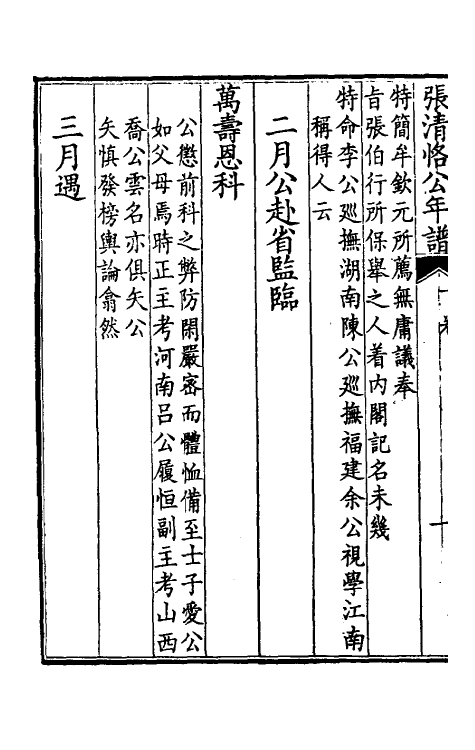 張清恪公年譜
特簡牟欽元所薦無庸議奉
旨張伯行所保舉之人着內閣記名未幾
特命李公廵撫湖南陳公廵撫福建余公視學江南
稱得人云
二月公赴省監臨
萬壽恩科
公懲前科之弊防閑嚴密而體恤備至士子愛公
如父母焉時正主考河南呂公履恒副主考山西
喬公雲名亦俱矢公
矢慎發榜輿論翕然
三月遇